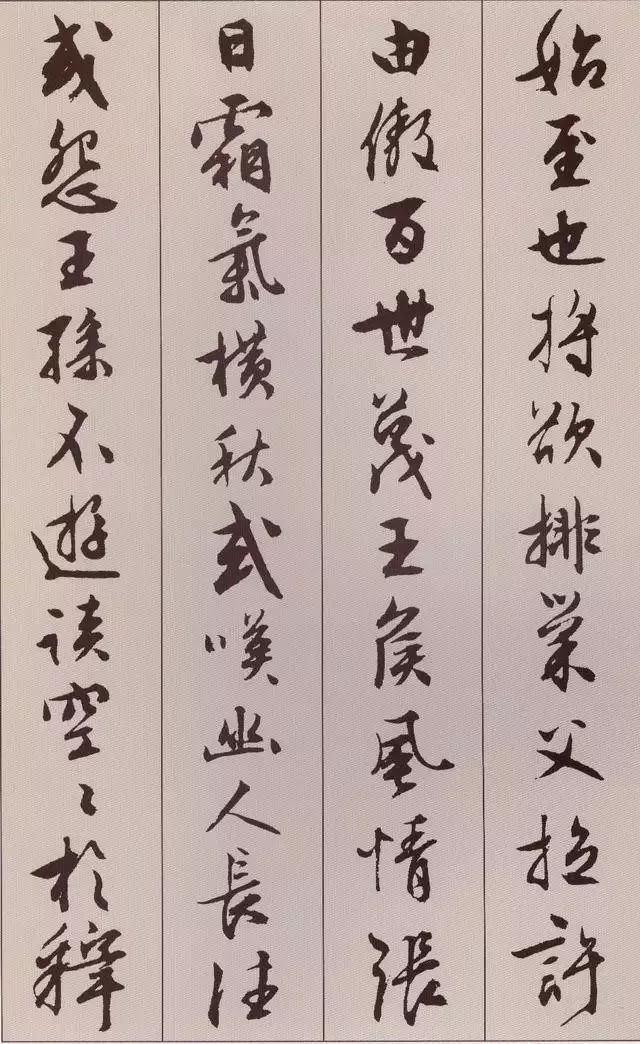 始至也将欲排巢父拉許
由傲百世蔑王侯風情張
日霜氣橫秋或嘆幽人長往
或怨王孫不遊談空〻於釋